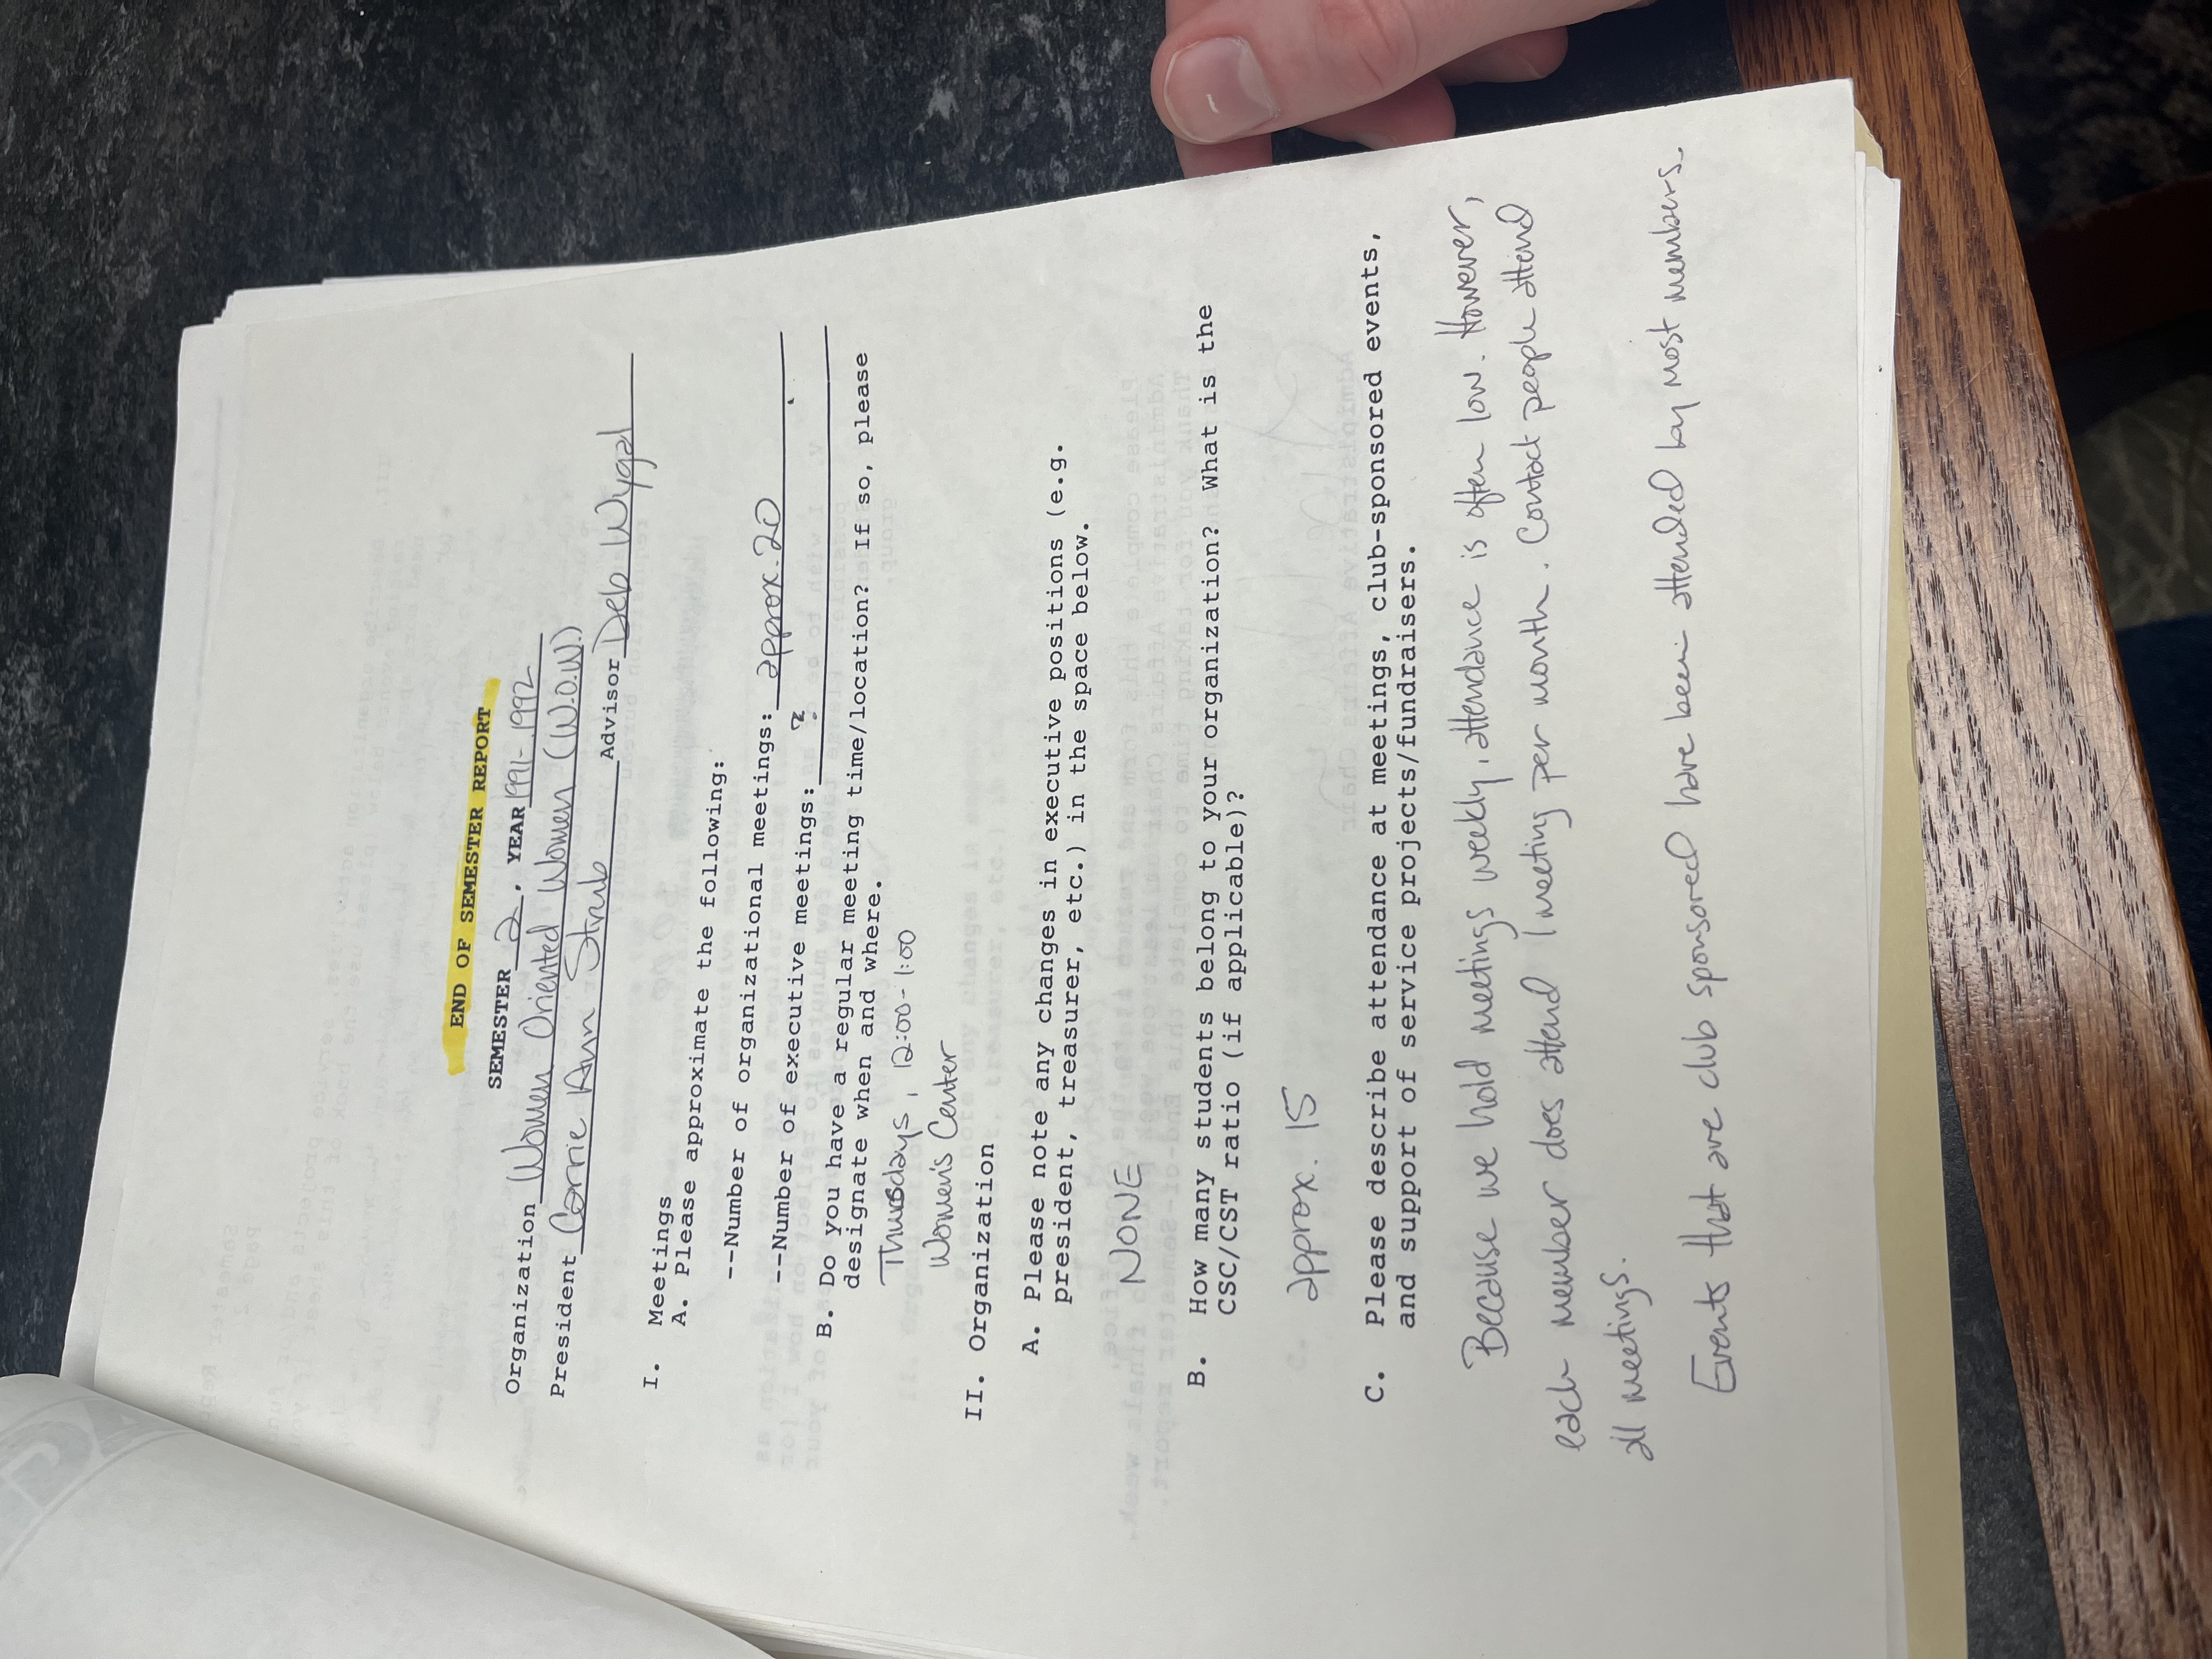 END OF SEMESTER REPORT
SEMESTER 2, YEAR 1991-1992
Organization Women Oriented Women (W.O.W.)
President Carrie Ann Strub Advisor Deb Wygal
I. Meetings
A. Please approximate the following:
--Number of organizational meetings: approx. 20
--Number of executive meetings: ?
B. Do you have a regular meeting time/location? If so, please
designate when and where.
Thursdays, 12:00-1:00
Women's Center
II. Organization
A. Please note any changes in executive positions (e.g.
president, treasurer, etc.) in the space below.
NONE
B. How many students belong to your organization? What is the
CSC/CST ratio (if applicable)?
approx. 15
C. Please describe attendance at meetings, club-sponsored events,
and support of service projects/fundraisers.
Because we hold meetings weekly, attendance is often low. However,
each member does attend 1 meeting per month. Contact people attend
all meetings.
Events that are club sponsored have been attended by most members.